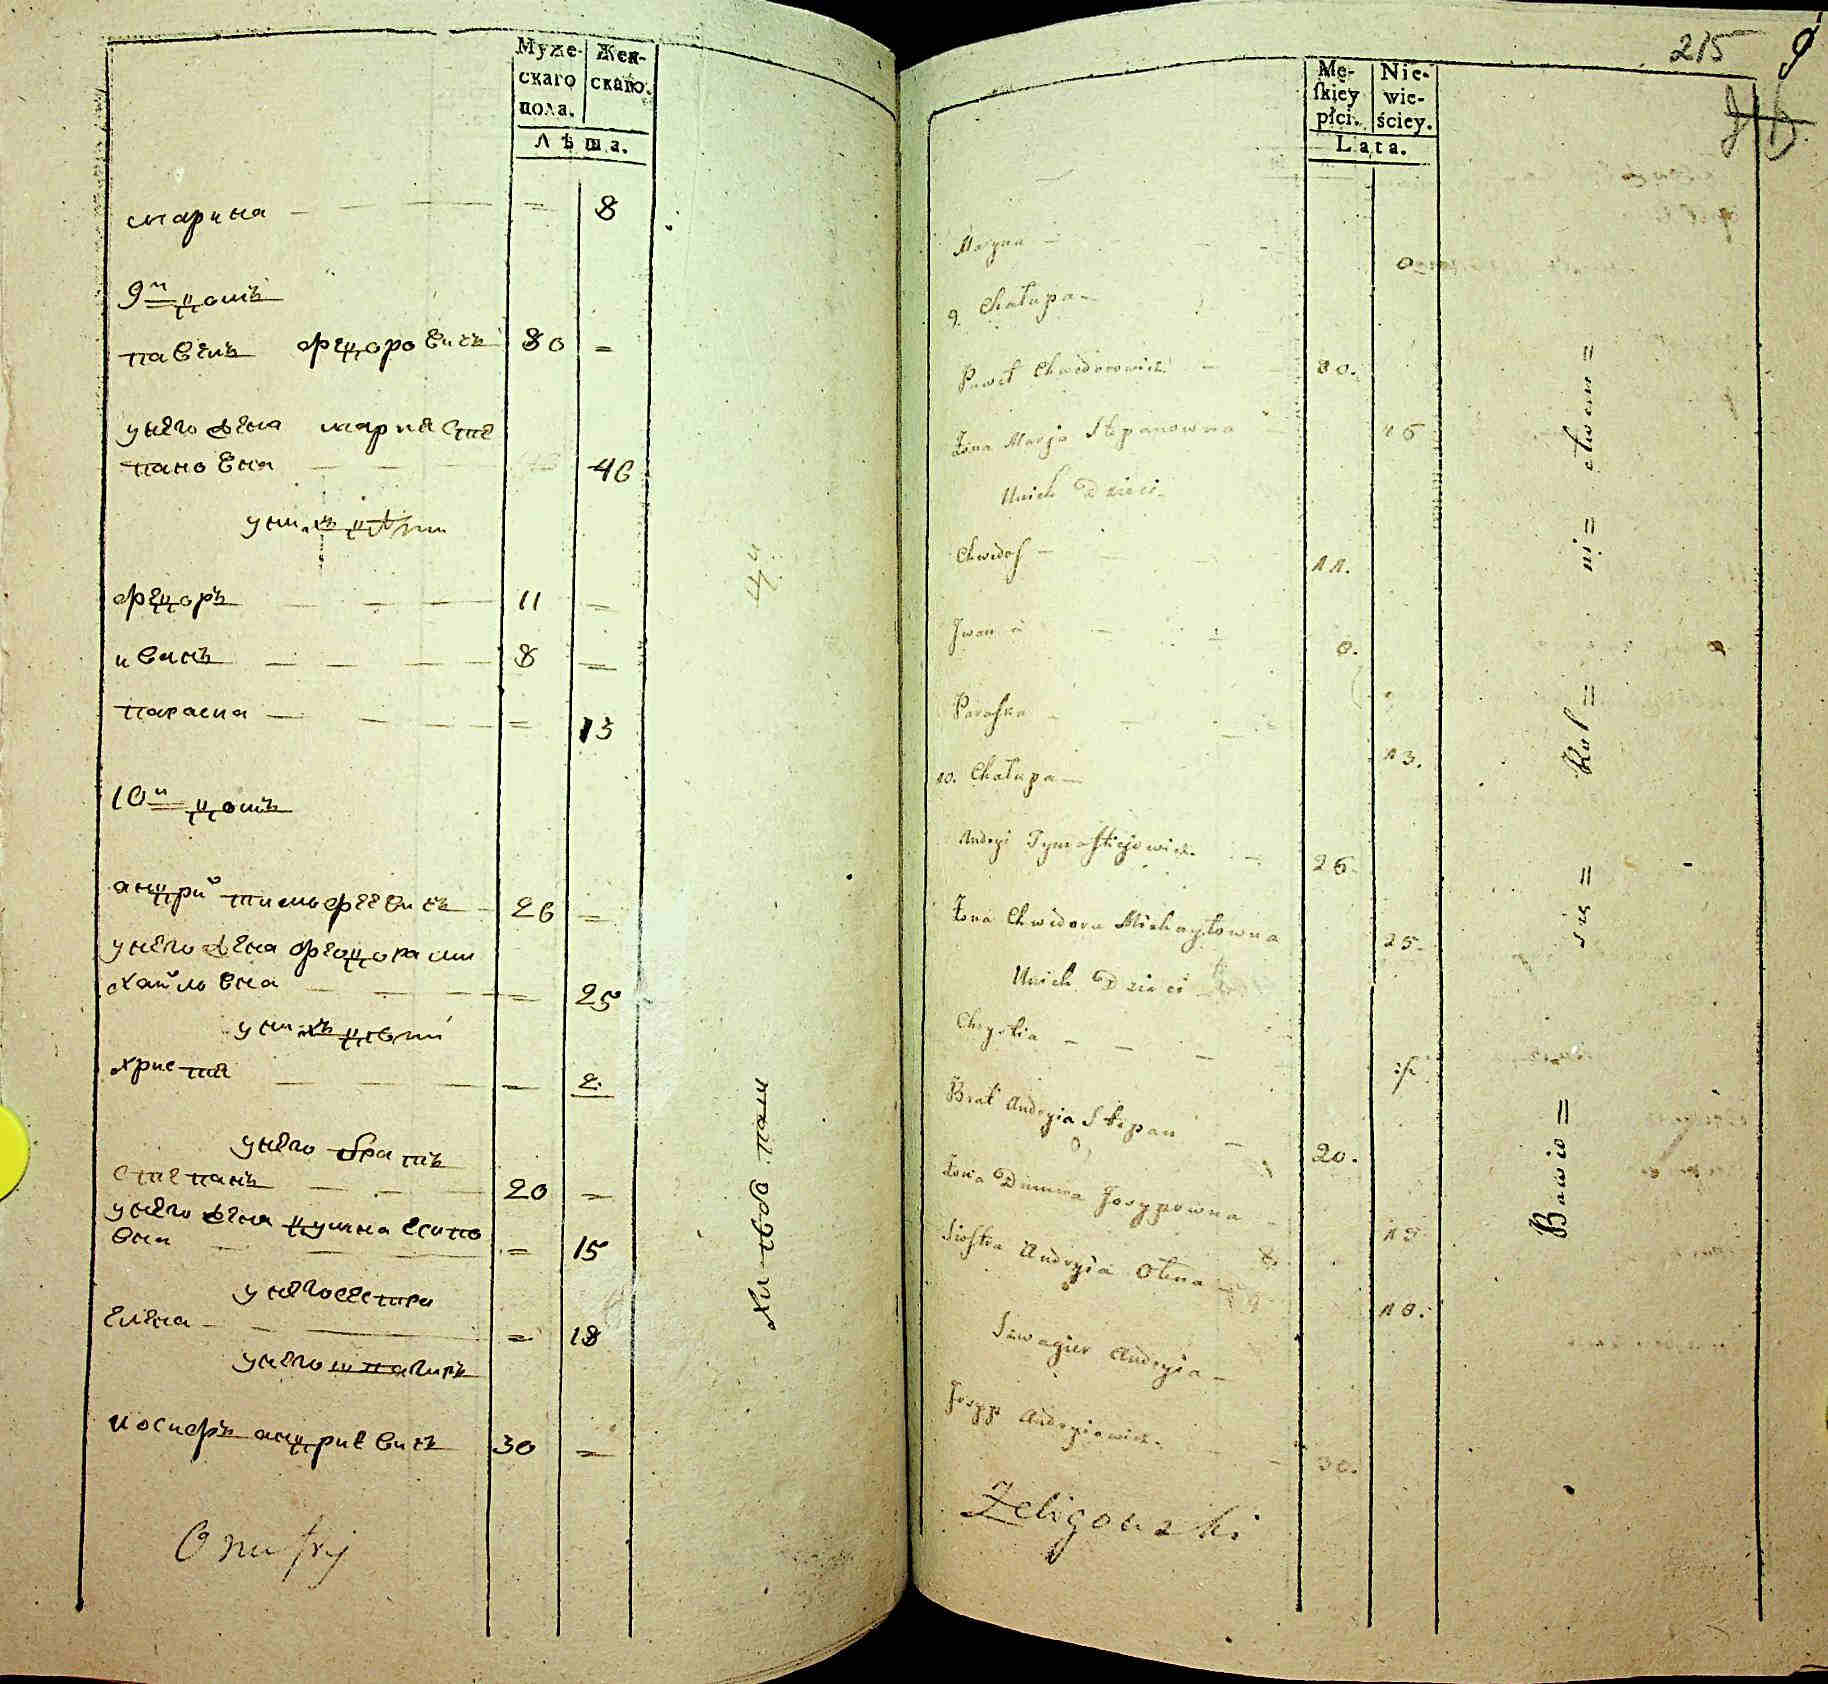 Муже-
скаго
пола.
Жен-
скаго.
Лѣта.
марина 8
9й домъ
павелъ федоровичъ 80
унего жена мария сте
пановна 46
унихъ дѣти
федоръ 11
иванъ 8
параска 13
10й домъ
андрий тимофеевичъ 26
унего жена федора ми
хайловна 25
унихъ дѣти
христя 2
унего братъ
степанъ 20
унего жена думна есипо
вна 15
унего сестра
елена 18
унего швагиръ
иосифъ андриевичъ 30
Onufry
215
Mę-
skiey
płci.
Nie-
wie-
ściey.
Lata.
Maryna
9. Chałupa
Paweł Chwedorowicz 80.
Żona Marja Stepanowna 46
Unich Dzieci
Chwedor 11.
Jwan 8.
Paraska 13.
10. Chałupa
Andryi Tymofiejowicz 26
Żona Chwedora Michayłowna 25.
Unich Dzieci
Chrystia
Brat Andryia Stepan 20.
Żona Dumna Josypowna 15
Siostra Andryia Ołena 18.
Szwagier Andryia
Josyp Andryiowicz 30.
Żeligowski